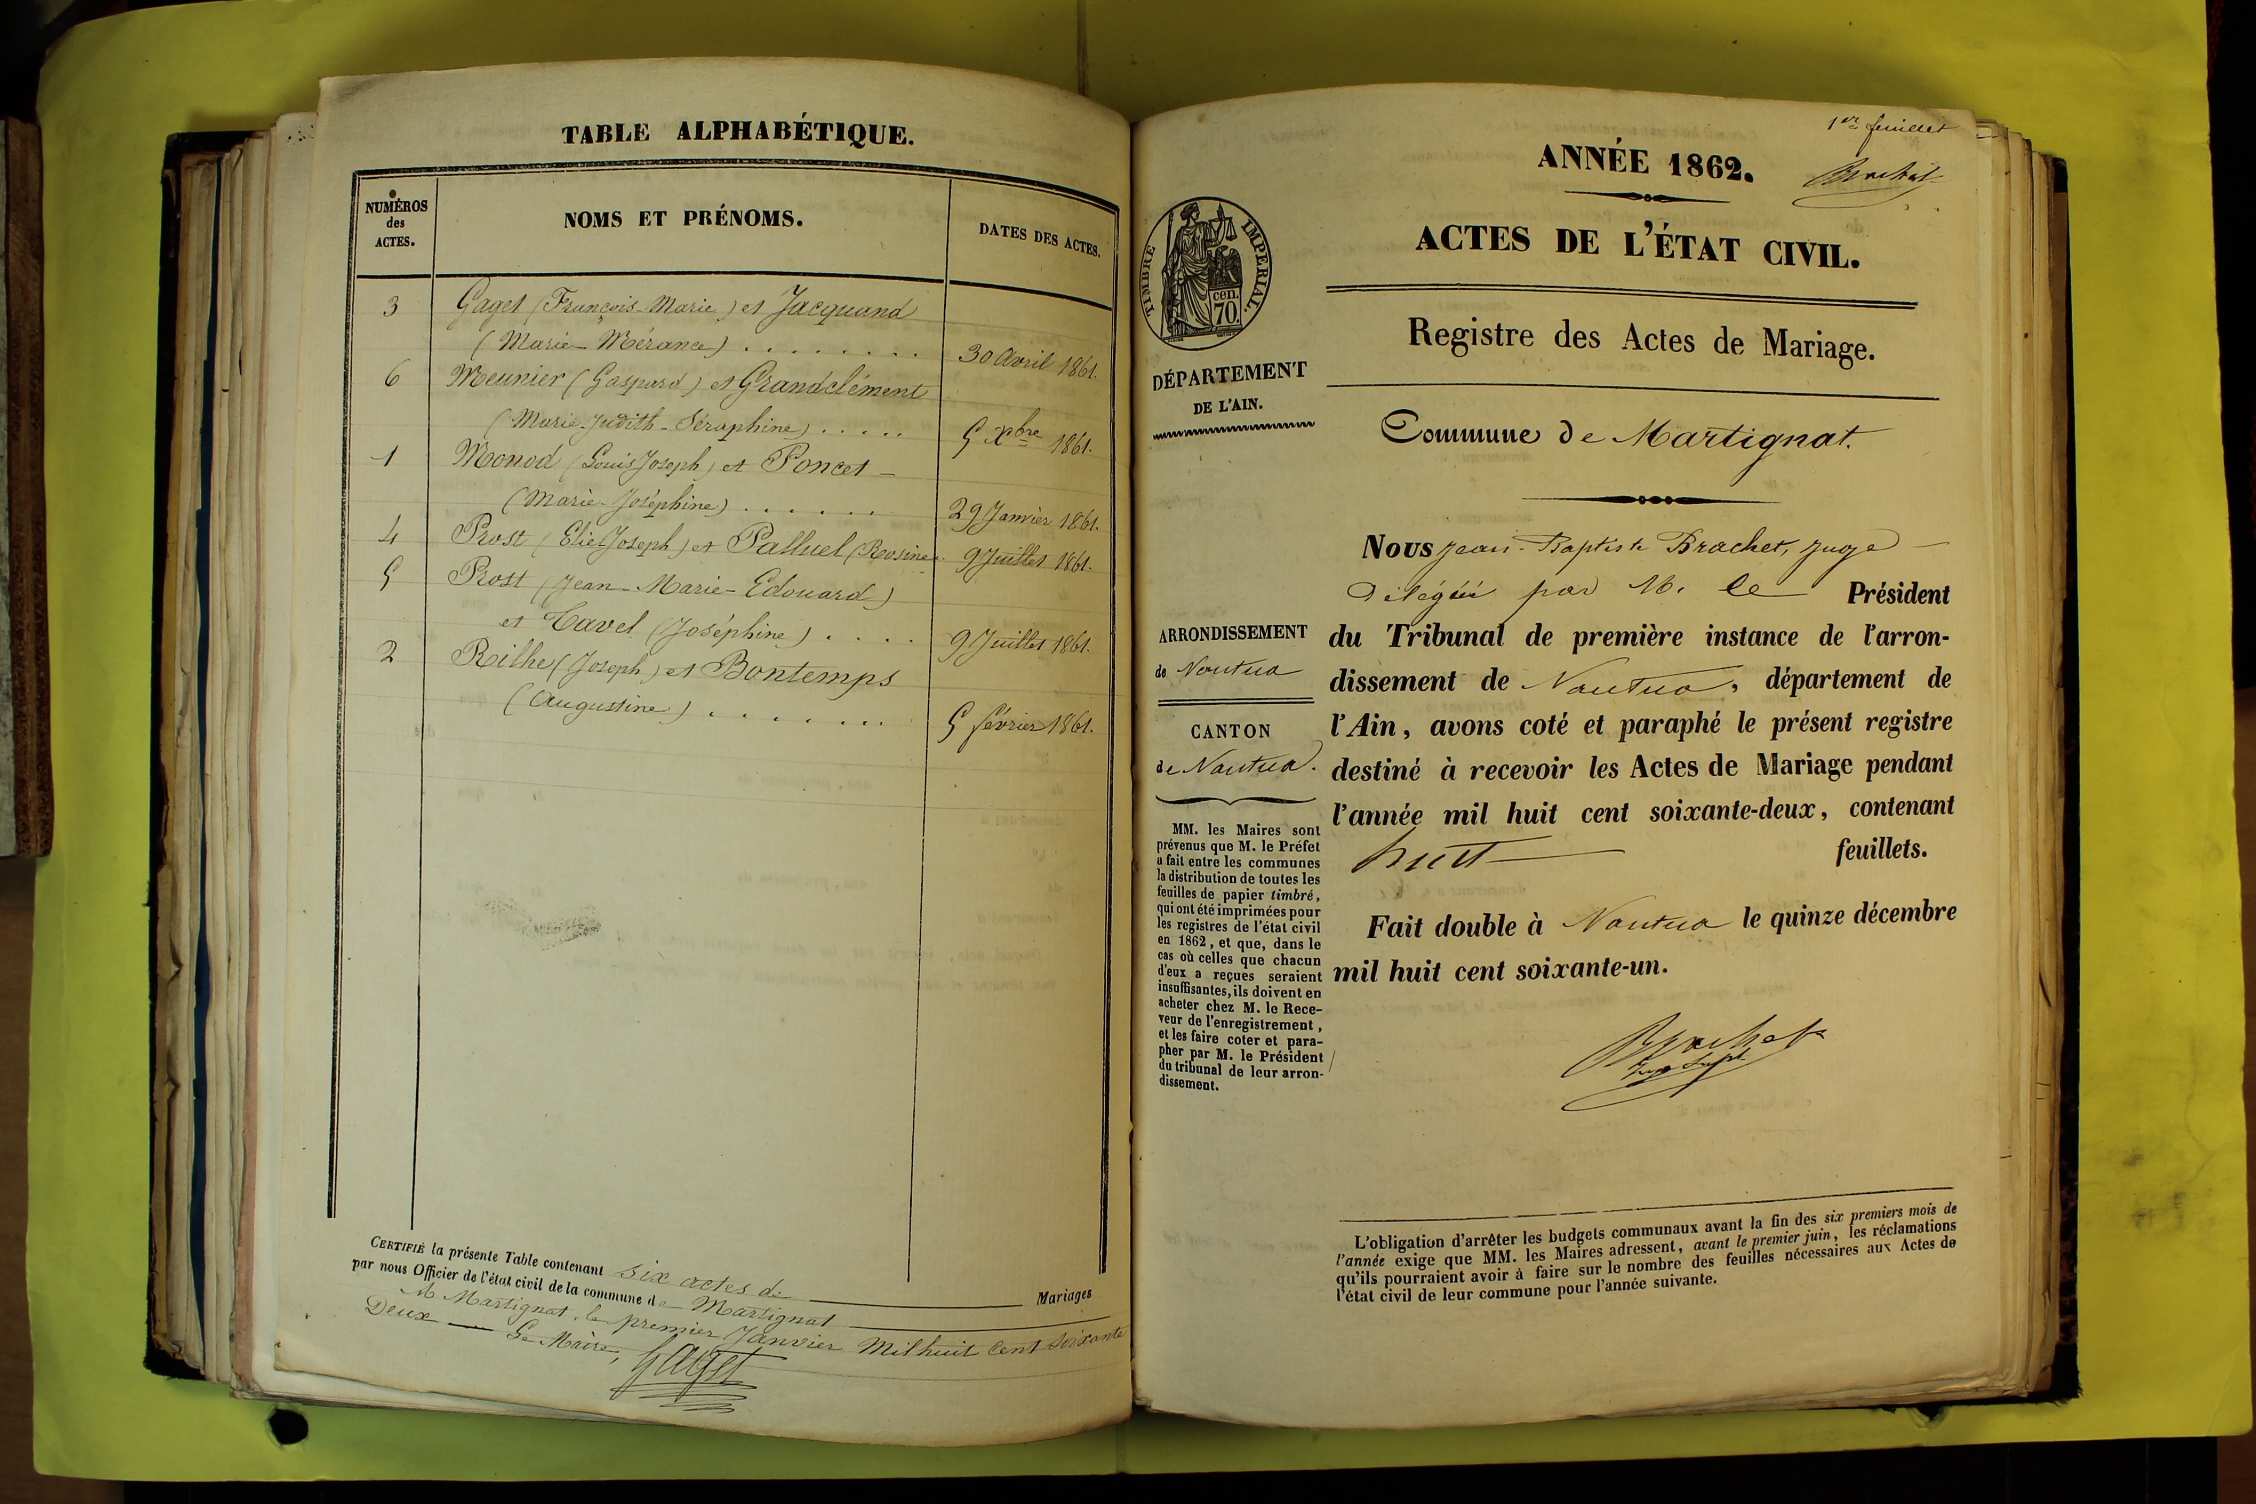 TABLE ALPHABÉTIQUE.
NUMÉROS
des
ACTES.
NOMS ET PRÉNOMS.
DATES DES ACTES.
3 Gaget (François-Marie) et Jacquand
(Marie-Mérance) . . . . . . . . 30 Avril 1861.
6 Meunier (Gaspard) et Grandclément
(Marie-Judith-Séraphine) . . . . . 5 Xbre 1861.
1 Monod (Louis Joseph) et Poncet
(Marie-Joséphine) . . . . . . 29 Janvier 1861.
4 Prost (Elie Joseph) et Palluel (Rosine 9 Juillet 1861.
5 Prost (Jean-Marie-Edouard)
et Tavel (Joséphine) . . . . 9 Juillet 1861.
2 Reilhe (Joseph) et Bontemps
(Augustine) . . . . . . . . 5 février 1861.
CERTIFIÉ la présente Table contenant six actes de Mariages
par nous Officier de l'état civil de la commune de Martignat
A Martignat, le premier Janvier Mil huit cent soixante
Deux — Le Maire,
Gaget
1er feuillet
Brachet
ANNÉE 1862.
ACTES DE L'ÉTAT CIVIL.
TIMBRE IMPERIAL.
cen.
70.
Registre des Actes de Mariage.
DÉPARTEMENT
DE L'AIN.
Commune de Martignat.
Nous Jean-Baptiste Brachet, juge
Délégué par M. le Président
du Tribunal de première instance de l'arron-
dissement de Nantua, département de
l'Ain, avons coté et paraphé le présent registre
destiné à recevoir les Actes de Mariage pendant
l'année mil huit cent soixante-deux, contenant
huit feuillets.
Fait double à Nantua le quinze décembre
mil huit cent soixante-un.
Brachet
ARRONDISSEMENT
de Nantua
CANTON
de Nantua.
MM. les Maires sont
prévenus que M. le Préfet
a fait entre les communes
la distribution de toutes les
feuilles de papier timbré,
qui ont été imprimées pour
les registres de l'état civil
en 1862, et que, dans le
cas où celles que chacun
d'eux a reçues seraient
insuffisantes, ils doivent en
acheter chez M. le Rece-
veur de l'enregistrement,
et les faire coter et para-
pher par M. le Président
du tribunal de leur arron-
dissement.
L'obligation d'arrêter les budgets communaux avant la fin des six premiers mois de
l'année exige que MM. les Maires adressent, avant le premier juin, les réclamations
qu'ils pourraient avoir à faire sur le nombre des feuilles nécessaires aux Actes de
l'état civil de leur commune pour l'année suivante.